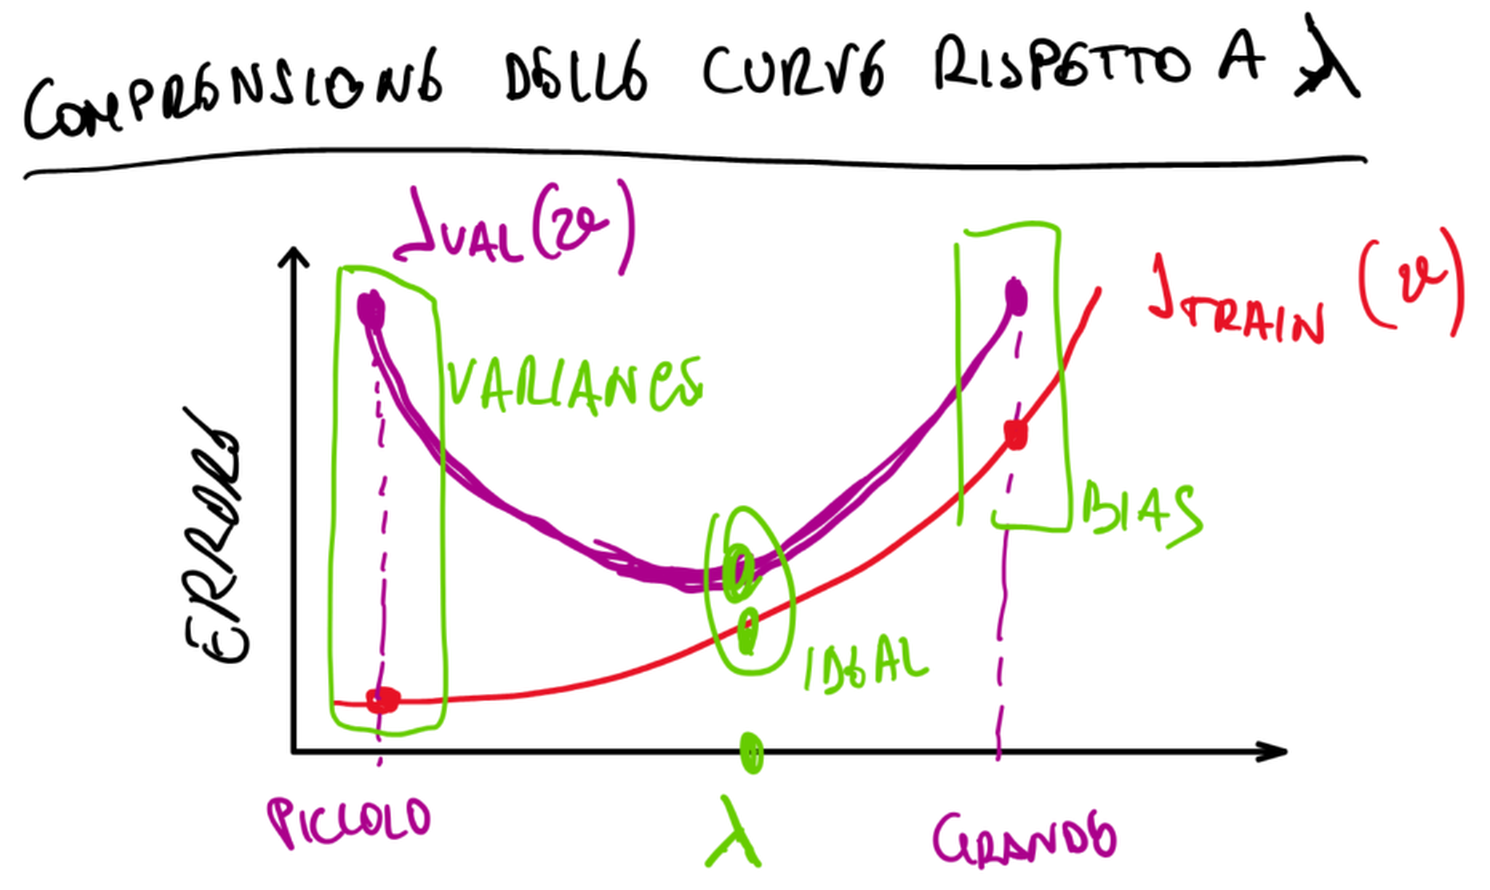 COMPRENSIONE DELLE CURVE RISPETTO A λ
J_VAL(ϑ)
J_TRAIN(ϑ)
VARIANCE
ERRORE
BIAS
IDEAL
PICCOLO
λ
GRANDE